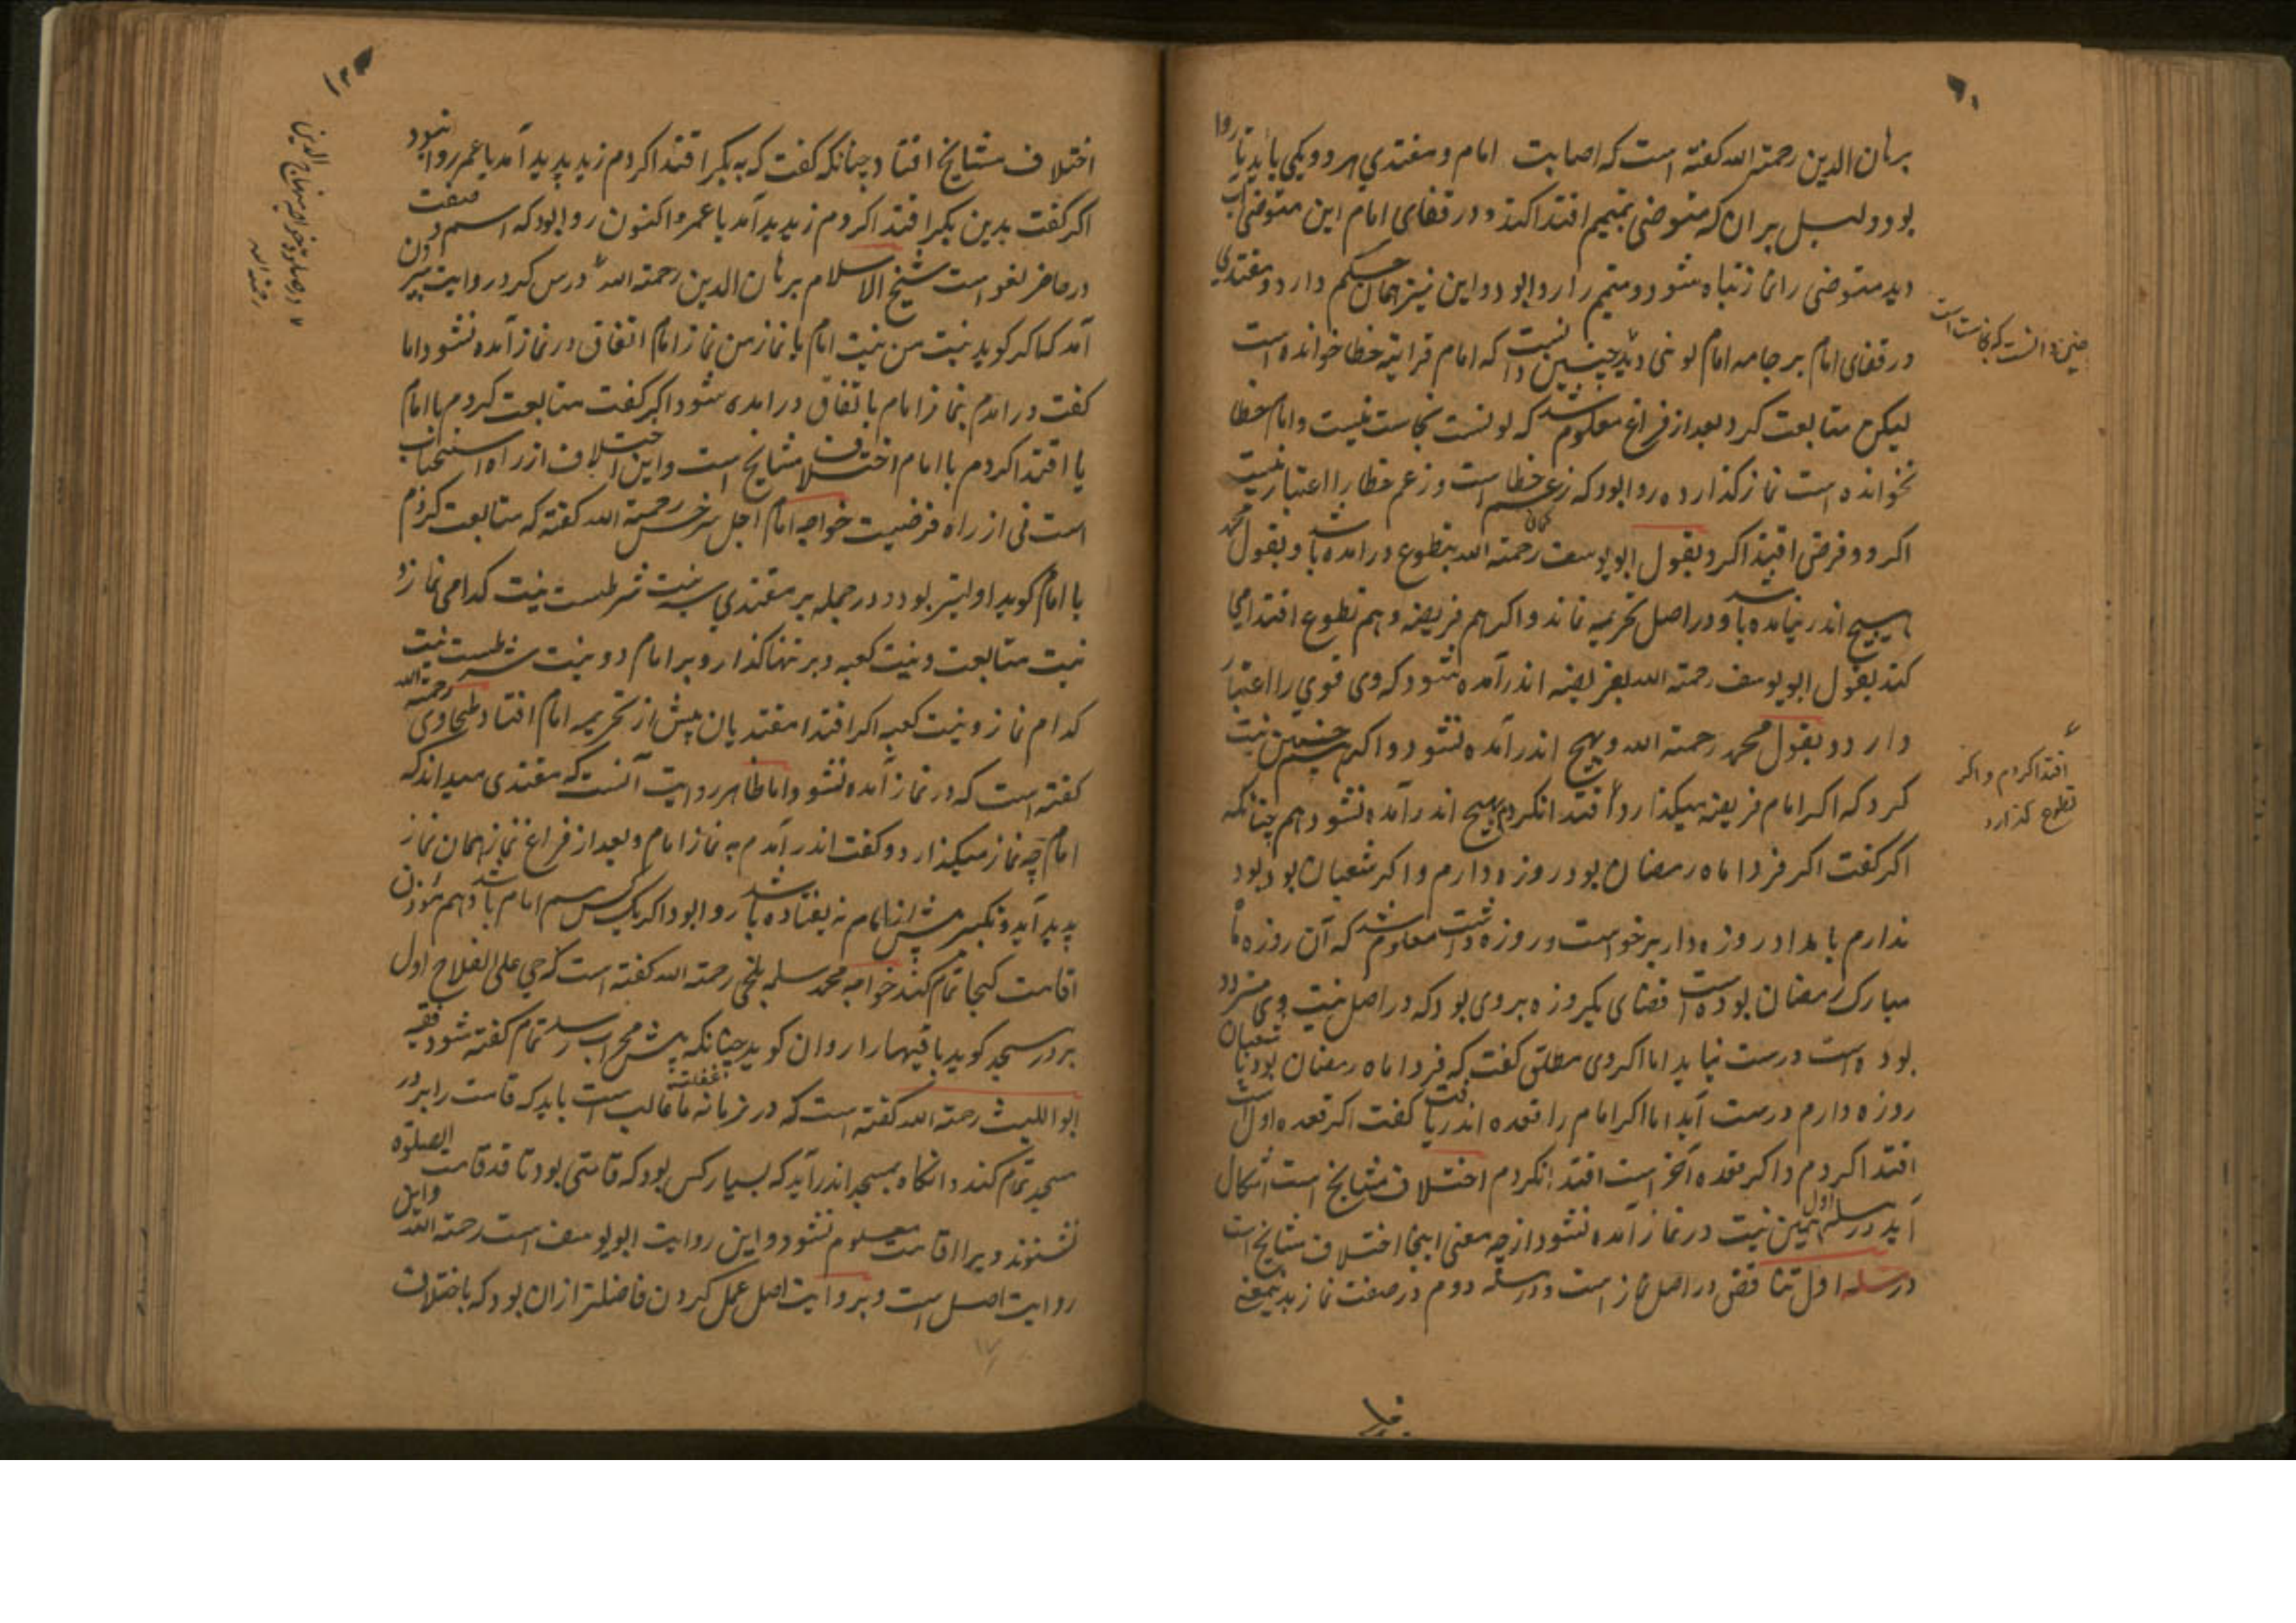 برهان الدین رحمة الله کفته است که اصابت امام و مقتدي هر دو یکی باید تا روا
بود و دلیل بر ان که متوضی بمتیمم اقتدا کند و در قفای امام این متوضی اب
دید متوضی را نماز تباه شود و متیمم را روا بود و این نیز همان حکم دارد و مقتدي
در قفای امام بر جامه امام لونی دید چنین دانست که امام قرایة خطا خوانده است
لیکن متابعت کرد بعد از فراغ معلوم شد که لونست نجاست نیست و امام خطا
نخوانده است نماز کذارده روا بود که زعم خطا است و زعم خطا را اعتبار نیست
اکر دو فرضی اقتدا کرد بقول ابویوسف رحمة الله بتطوع درامده باشد و بقول محمد
بهیچ اندر نیامده باشد و در اصل تحریمه نماند و اکر هم فریضه و هم تطوع اقتدا می
کند بقول ابویوسف رحمة الله بفریضه اندر آمده شود که وی قوي را اعتبار
دارد و بقول محمد رحمة الله و بهیچ اندر آمده نشود و اکر همچنین نیت
کرد که اکر امام فریضه میکذارد اقتدا نکردم بهیچ اندر آمده نشود هم چنانکه
اکر کفت اکر فردا ماه رمضان بود روزه دارم و اکر شعبان بود
ندارم بامداد روزه دار برخواست و روزه داشت معلوم شد که آن روز ماه
مبارک رمضان بوده است قضای یکروزه بروی بود که در اصل نیت وی متردد
بوده است درست نیاید اما اکر وی مطلق کفت که فردا ماه رمضان بود یا شعبان
روزه دارم درست آید اما اکر امام را قعده اندر یافت کفت اکر قعده اول است
اقتدا کردم و اکر قعده آخر است اقتدا نکردم اختلاف مشایخ است اشکال
آید در مسله اول بهمین نیت در نماز آمده نشود از چه معنی اینجا اختلاف مشایخ است
در مسله اول تناقض در اصل نماز است و در مسله دوم در صفت نماز بدینمعنی
چنین دانست که نجاست است
اقتدا کردم و اکر
تطوع کذارد
اختلاف مشایخ افتاد چنانکه کفت که به بکر اقتدا کردم زید پدید آمد یا عمر روا نبود
اکر کفت بدین بکر اقتدا کردم زید پدید آمد یا عمرو اکنون روا بود که اسم و صفت
در حاضر لغو است شیخ الاسلام برهان الدین رحمة الله درس کرد در روایت بیرون
آمد که اکر کوید نیت من نیت امام یا نماز من نماز امام اتفاق در نماز آمده نشود اما
کفت در امدم بنماز امام باتفاق در امده شود اکر کفت متابعت کردم با امام
یا اقتدا کردم با امام اختلاف مشایخ است و این اختلاف از راه استحباب
است نی از راه فرضیت خواجه امام اجل سرخسی رحمة الله کفته که متابعت کردم
با امام کوید اولیتر بود و در جمله بر مقتدي سه نیت شرطست نیت کدامی نماز و
نیت متابعت و نیت کعبه و بر تنها کذار و بر امام دو نیت شرطست نیت
کدام نماز و نیت کعبه اکر اقتدا مقتدیان پیش از تحریمه امام افتاد طحاوی رحمة الله
کفته است که در نماز آمده نشود و اما ظاهر روایت آنست که مقتدی میداند که
امام چه نماز میکذارد و کفت اندر آمدم به نماز امام و بعد از فراغ نماز همان نماز
پدید آید و تکبیر پیش از امام نیفتاده باشد روا بود اکر یک کس هم امام باشد و هم مؤذن
اقامت کجا تمام کند خواجه محمد سلمه بلخی رحمة الله کفته است که حي علی الفلاح اول
بر در مسجد کوید باقیها را روان کوید چنانکه پیش محراب رسد تمام کفته شود فقیه
ابو اللیث رحمة الله کفته است که در زمانه ما غفلت غالب است باید که قامت را بر در
مسجد تمام کند و انکاه بمسجد اندر آید که بسیار کس بود که قامتی بود تا قد قامت الصلوة
نشنوند ویرا اقامت معلوم نشود و این روایت ابویوسف است رحمة الله و این
روایت اصل است و بر روایت اصل عمل کردن فاضلتر از ان بود که باختلاف